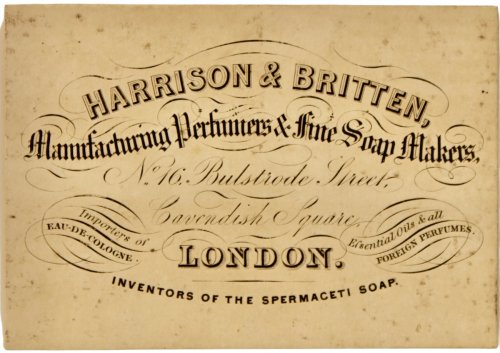 HARRISON & BRITTEN,
Manufacturing Perfumers & Fine Soap Makers,
No. 16, Bulstrode Street,
Cavendish Square
Importers of
EAU-DE-COLOGNE.
Essential Oils & all
FOREIGN PERFUMES.
LONDON.
INVENTORS OF THE SPERMACETI SOAP.